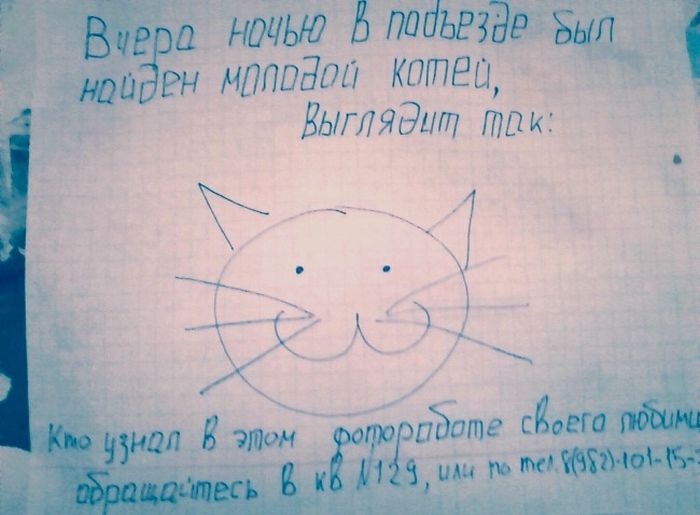 Вчера ночью в подъезде был
найден молодой котей,
Выглядит так:
Кто узнал в этом фотороботе своего любимц
обращайтесь в кв №129, или по тел. 8(982)-101-15-